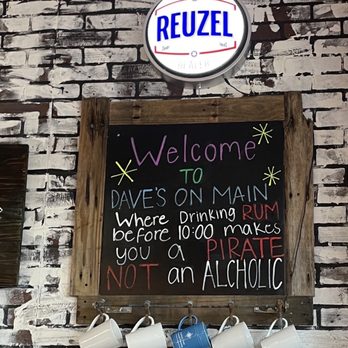 REUZEL
Welcome
TO
DAVE'S ON MAIN
Where Drinking RUM
before 10:00 makes
you a PIRATE
NOT an ALCHOLIC